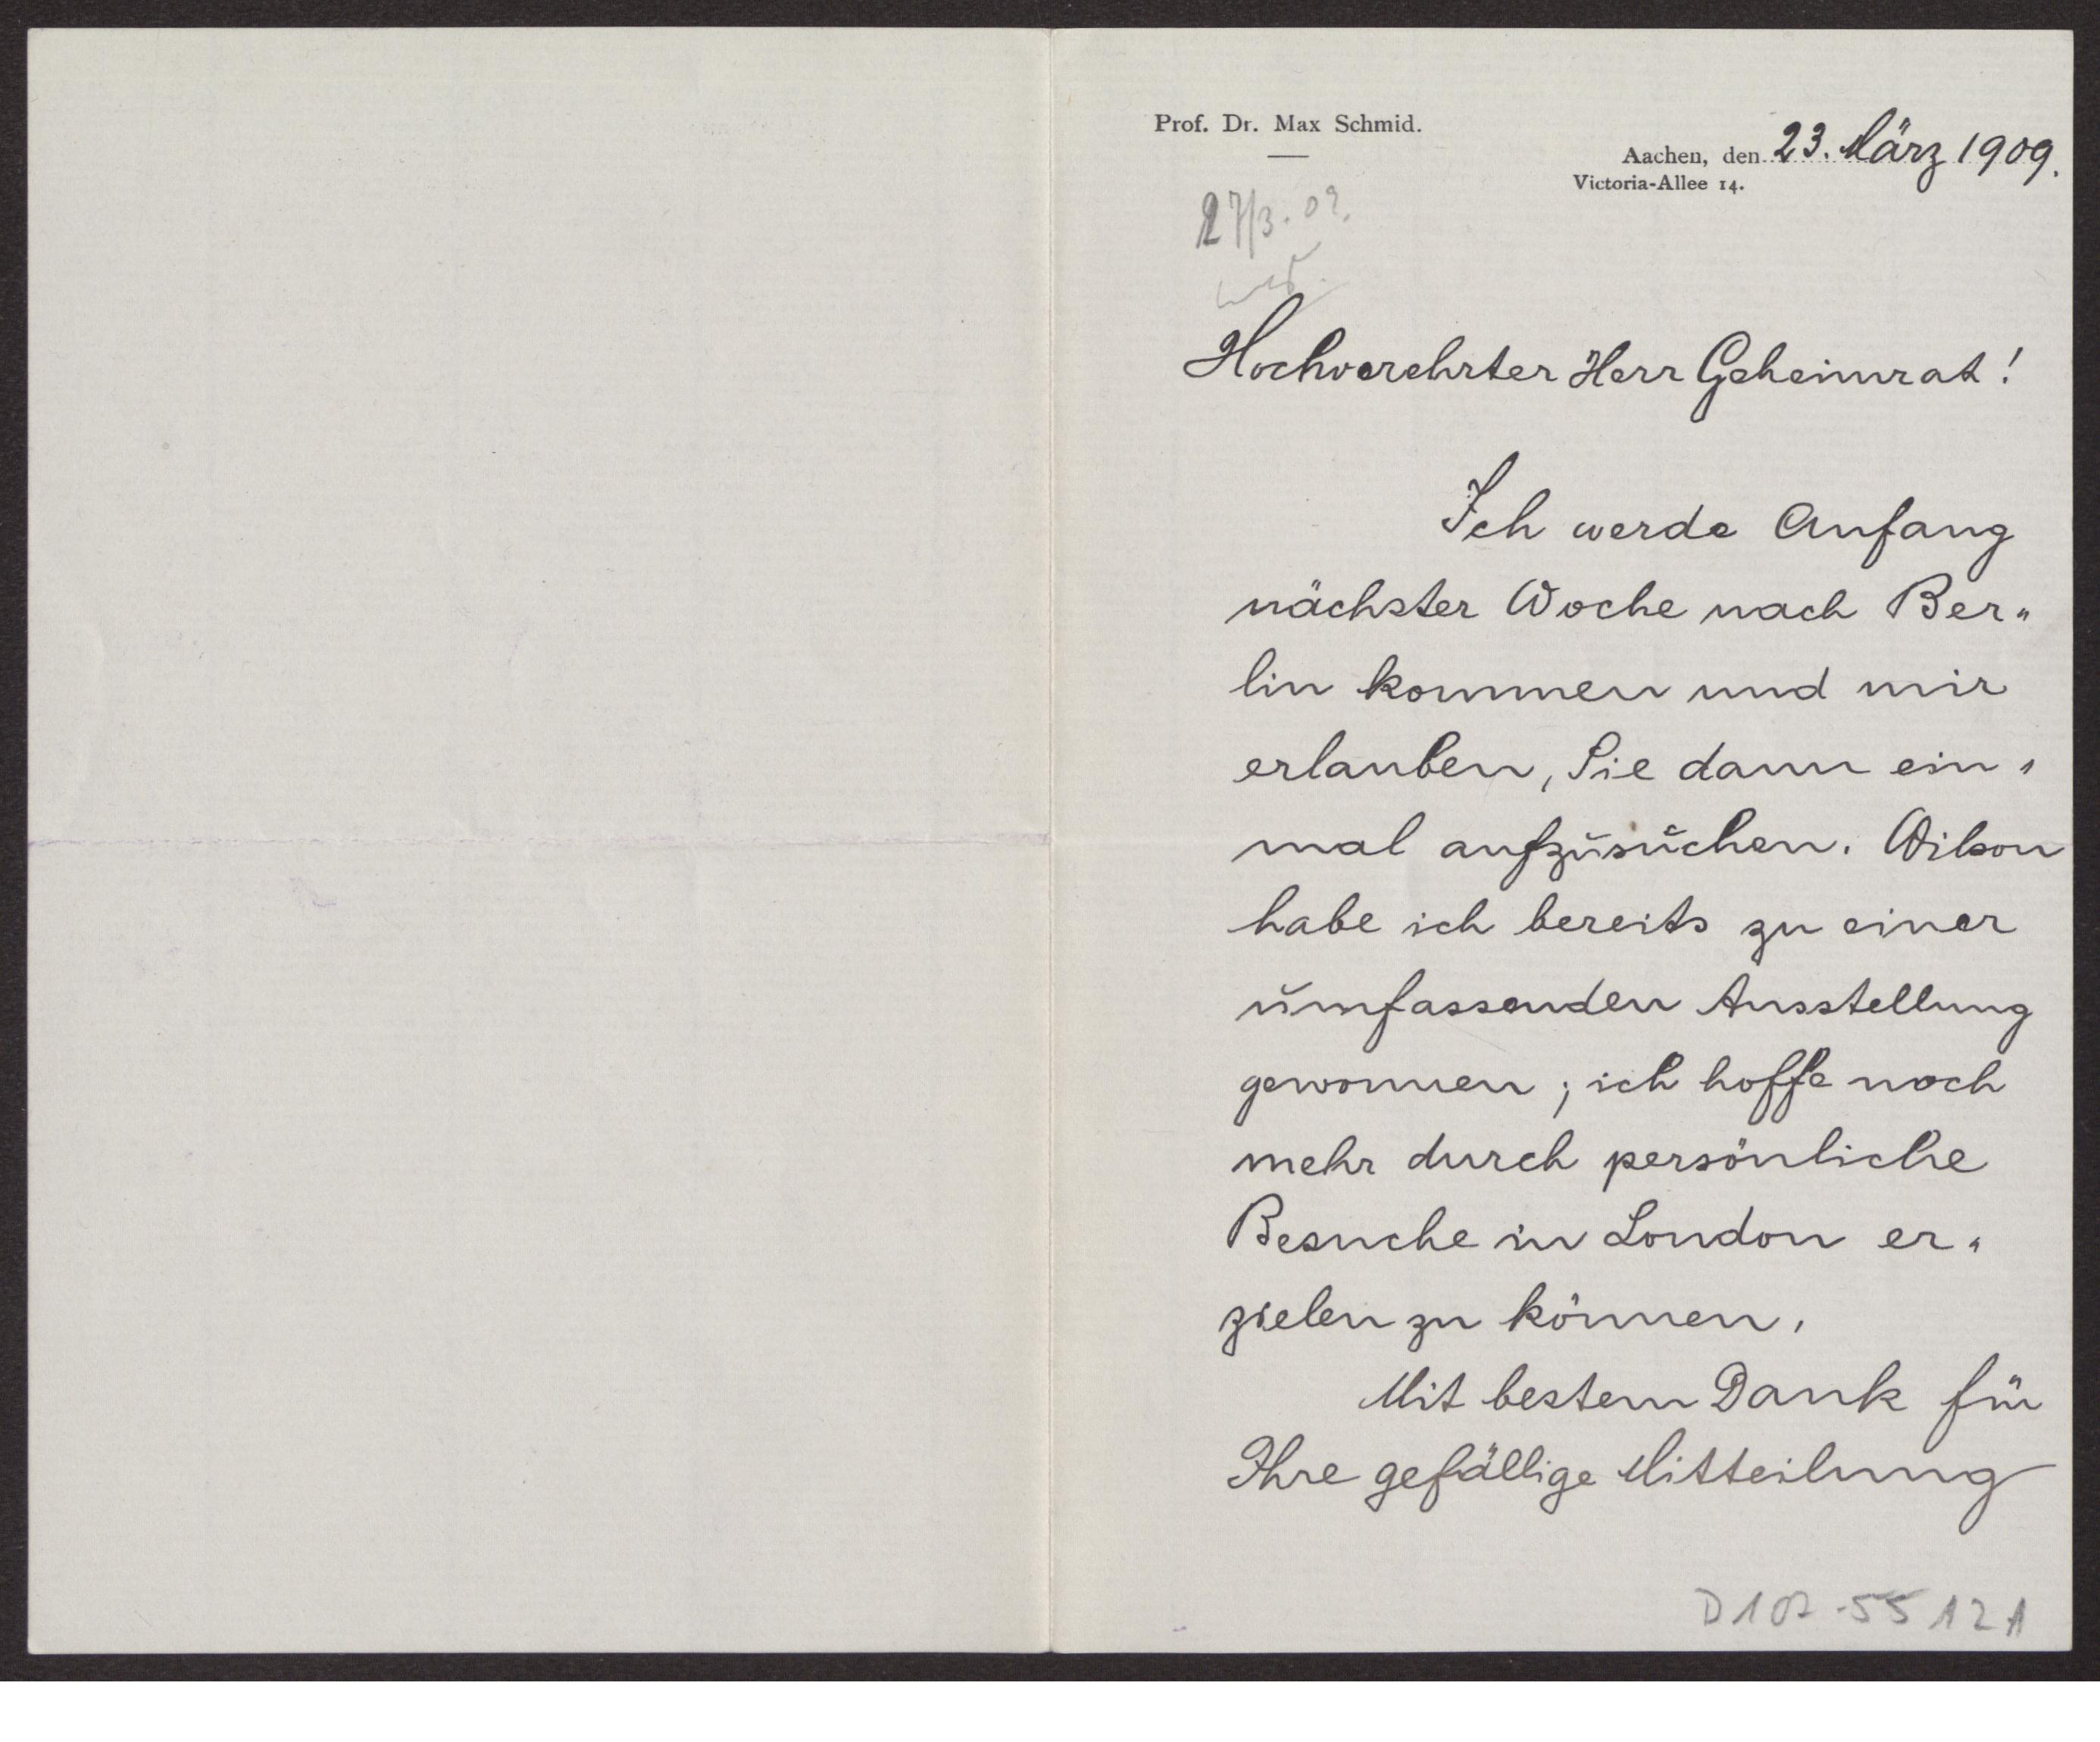 Prof. Dr. Max Schmid.
Aachen, den 23. März 1909.
Victoria-Allee 14.
27/3. 09.
Hochverehrter Herr Geheimrat!
Ich werde Anfang
nächster Woche nach Ber-
lin kommen und mir
erlauben, Sie dann ein-
mal aufzusuchen. Wilson
habe ich bereits zu einer
umfassenden Ausstellung
gewonnen; ich hoffe noch
mehr durch persönliche
Besuche in London er-
zielen zu können.
Mit bestem Dank für
Ihre gefällige Mitteilung
D107-55121